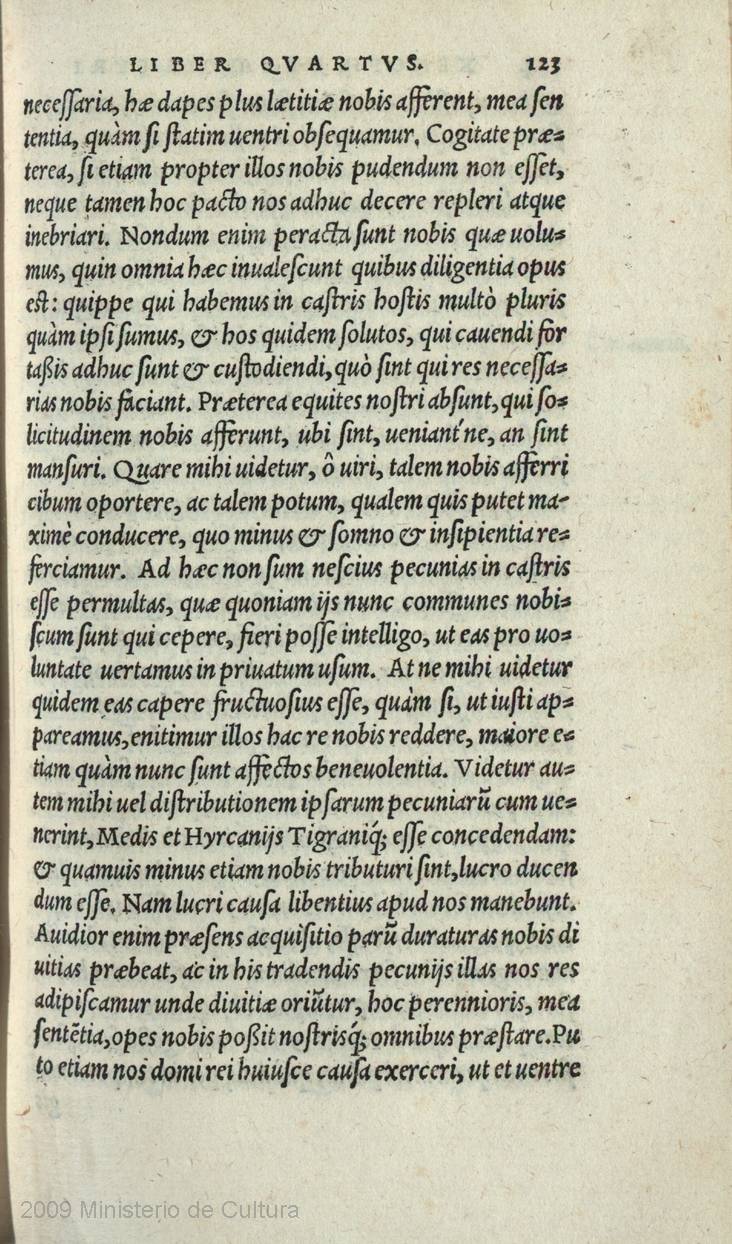 LIBER QVARTVS. 123
neceſſaria, hæ dapes plus lætitiæ nobis afferent, mea ſen
tentia, quàm ſi ſtatim uentri obſequamur. Cogitate præ=
terea, ſi etiam propter illos nobis pudendum non eſſet,
neque tamen hoc pacto nos adhuc decere repleri atque
inebriari. Nondum enim peracta ſunt nobis quæ uolu=
mus, quin omnia hæc inualeſcunt quibus diligentia opus
eſt: quippe qui habemus in caſtris hoſtis multò pluris
quàm ipſi ſumus, & hos quidem ſolutos, qui cauendi for
taßis adhuc ſunt & cuſtodiendi, quò ſint qui res neceſſa=
rias nobis faciant. Præterea equites noſtri abſunt, qui ſo=
licitudinem nobis afferunt, ubi ſint, ueniant'ne, an ſint
manſuri. Quare mihi uidetur, ô uiri, talem nobis afferri
cibum oportere, ac talem potum, qualem quis putet ma-
ximè conducere, quo minus & ſomno & inſipientia re=
ferciamur. Ad hæc non ſum neſcius pecunias in caſtris
eſſe permultas, quæ quoniam ijs nunc communes nobi=
ſcum ſunt qui cepere, fieri poſſe intelligo, ut eas pro uo=
luntate uertamus in priuatum uſum. At ne mihi uidetur
quidem eas capere fructuoſius eſſe, quàm ſi, ut iuſti ap=
pareamus, enitimur illos hac re nobis reddere, maiore e=
tiam quàm nunc ſunt affectos beneuolentia. Videtur au=
tem mihi uel diſtributionem ipſarum pecuniarũ cum ue=
nerint, Medis et Hyrcanijs Tigraniq́; eſſe concedendam:
& quamuis minus etiam nobis tributuri ſint, lucro ducen
dum eſſe. Nam lucri cauſa libentius apud nos manebunt.
Auidior enim præſens acquiſitio parũ duraturas nobis di
uitias præbeat, ac in his tradendis pecunijs illas nos res
adipiſcamur unde diuitiæ oriũtur, hoc perennioris, mea
ſentẽtia, opes nobis poßit noſtrisq́; omnibus præſtare. Pu
to etiam nos domi rei huiuſce cauſa exerceri, ut et uentre
2009 Ministerio de Cultura